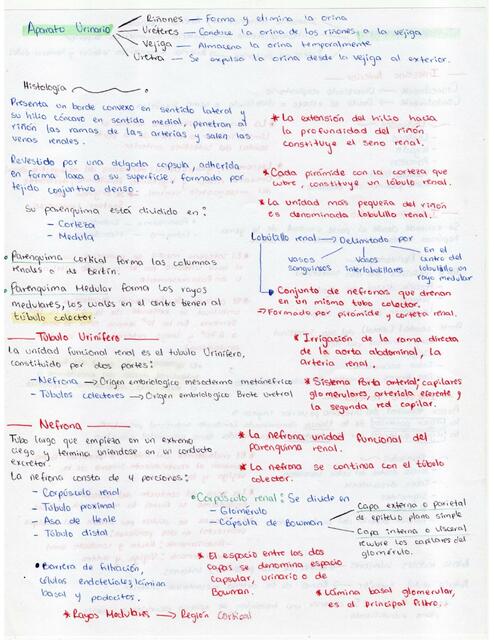 Aparato Urinario
Riñones — Forma y elimina la orina
Uréteres — Conduce la orina de los riñones, a la vejiga
Vejiga — Almacena la orina temporalmente
Uretra — Se expulsa la orina desde la vejiga al exterior.
Histología
Presenta un borde convexo en sentido lateral y
su hilio cóncavo en sentido medial, penetran al
riñón las ramas de las arterias y salen las
venas renales.
Revestido por una delgada capsula, adherida
en forma laxa a su superficie, formada por
tejido conjuntivo denso.
Su parenquima está dividido en:
- Corteza
- Medula
• Parenquima cortical forma las columnas
renales o de Bertin.
• Parenquima Medular forma los rayos
medulares, los cuales en el centro tienen al
túbulo colector.
* La extensión del hilio hacia
la profundidad del riñón
constituye el seno renal.
* Cada pirámide con la corteza que
cubre, constituye un lóbulo renal.
* La unidad mas pequeña del riñón
es denominada lobulillo renal.
Lobulillo renal → Delimitado por
vasos
sanguineos
vasos
interlobulillares
En el
centro del
lobulillo un
rayo medular
Conjunto de nefronas que drenan
en un mismo tubo colector.
→ Formado por pirámide y corteza renal.
Túbulo Urinífero
La unidad funcional renal es el tubulo Urinífero,
constituido por dos partes:
- Nefrona → Origen embriologico mesodermo metanéfrico
- Túbulos colectores → Origen embriologico Brote uretral
* Irrigación de la rama directa
de la aorta abdominal, la
arteria renal.
* Sistema Porta arterial; capilares
glomerulares, arteriola eferente y
la segunda red capilar.
Nefrona
Tubo largo que empieza en un extremo
ciego y termina uniéndose en un conducto
excretor.
La nefrona consta de 4 porciones:
- Corpúsculo renal
- Túbulo proximal
- Asa de Henle
- Túbulo distal
* La nefrona unidad funcional del
parenquima renal.
* La nefrona se continua con el túbulo
colector.
• Corpúsculo renal: Se divide en
- Glomérulo
- Cápsula de Bowman
Capa externa o parietal
de epitelio plano simple
Capa interna o visceral
recubre los capilares del
glomérulo.
• Barrera de filtración,
células endoteliales, lámina
basal y podocitos.
* El espacio entre las dos
capas se denomina espacio
capsular, urinario o de
Bowman.
* Lámina basal glomerular,
es el principal filtro.
* Rayos Medulares → Región Cortical